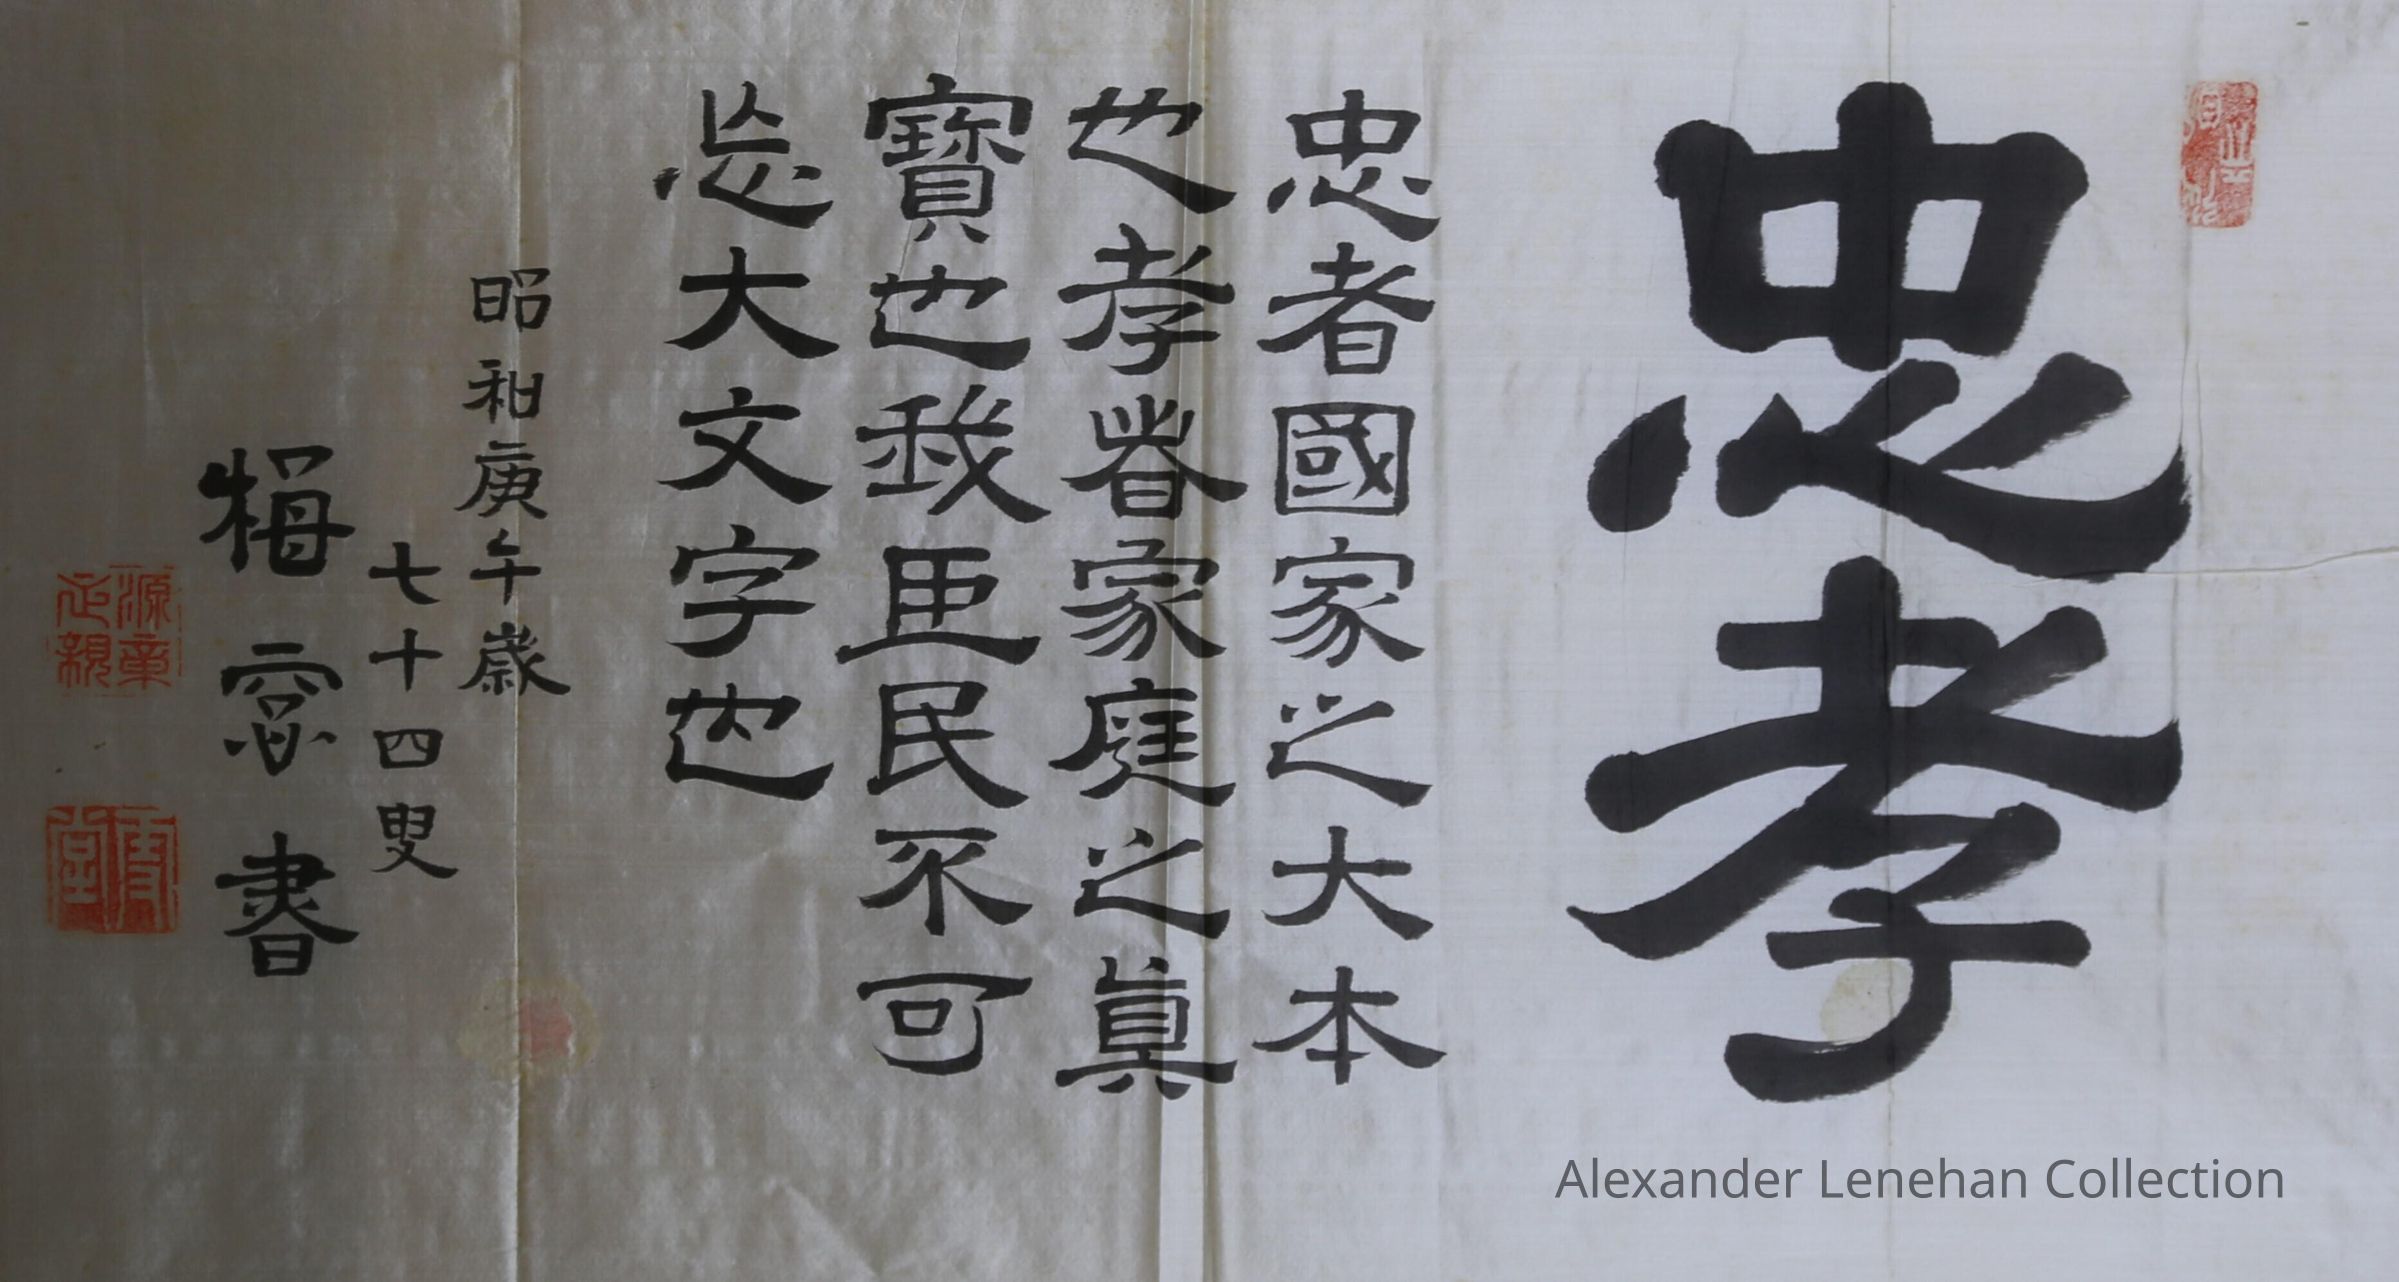 忠孝
忠者國家之大本
也孝者家庭之眞
寶也我臣民不可
忘大文字也
昭和庚午歲
七十四叟
梅窓書
Alexander Lenehan Collection